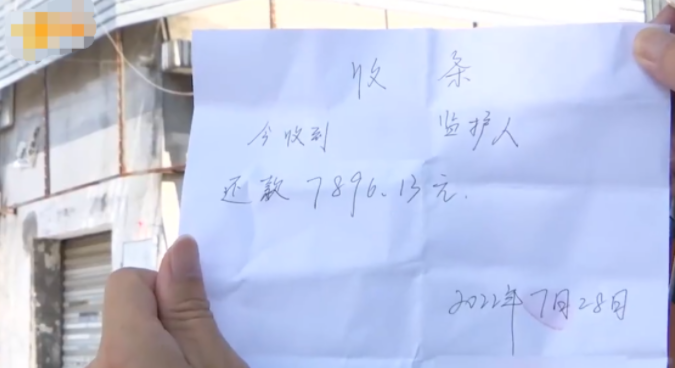 收条
今收到 监护人
还款7896.13元.
2022年7月28日